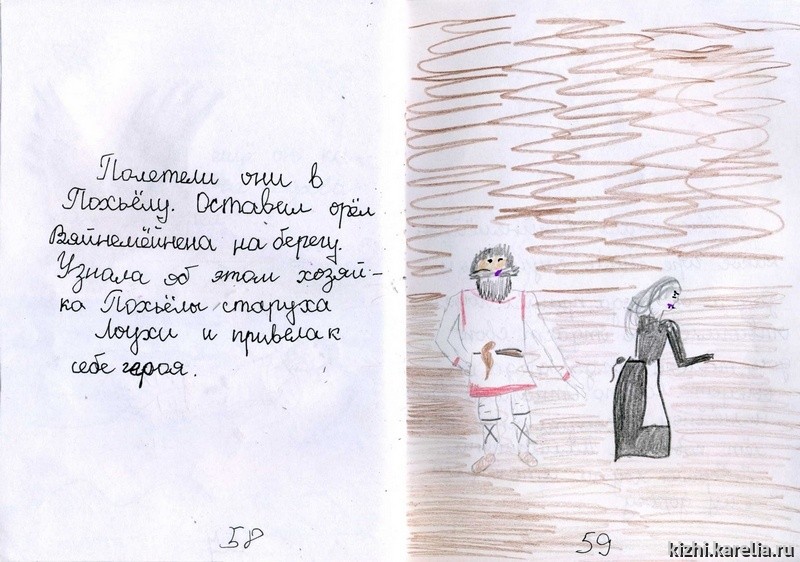 Полетели они в
Похьёлу. Оставил орёл
Вяйнемёйнена на берегу.
Узнала об этом хозяй-
ка Похьёлы старуха
Лоухи и привела к
себе героя.
58
59
kizhi.karelia.ru